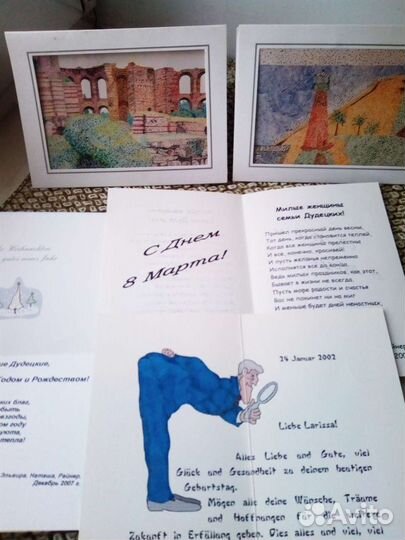 С Днем
8 Марта!
Милые женщины
семьи Дудецких!
Пришел прекрасный день весны,
Тот день, когда становится теплей,
Когда все женщины прелестны
И все, конечно, красивей!
И пусть желанья непременно
Исполнятся все до конца,
Ведь милых праздников, как этот,
Бывает в жизни не всегда,
Пусть море радости и счастья
Вас не покинет ни на миг
И меньше будет дней ненастных,
Weihnachten
gutes neues Jahr
Дудецкие,
Годом и Рождеством!
благ,
быть
году
тепла!
Эльвира, Наташа, Райнер
Декабрь 2007 г.
24 Januar 2002
Liebe Larissa!
Alles Liebe und Gute, viel
Glück und Gesundheit zu deinem heutigen
Geburtstag.
Mögen alle deine Wünsche, Träume
und Hoffnungen für die weitere
Zukunft in Erfüllung gehen. Dies alles und viel, viel
Avito